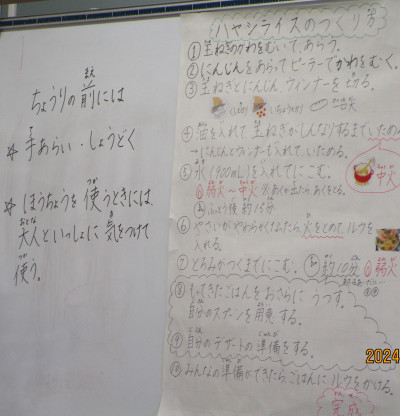 ちょうりの前には
まえ
☆ 手あらい・しょうどく
て
☆ ほうちょうを使うときには、
つか
大人といっしょに気をつけて
おとな
き
使う。
つか
ハヤシライスのつくり方
① 玉ねぎのかわをむいて、あらう。
② にんじんをあらってピーラーでかわをむく。
③ 玉ねぎとにんじん、ウィンナーを切る。
④ 油を入れて玉ねぎがしんなりするまでいためる
→にんじんとウィンナーも入れて、いためる。
⑤ 水(900mL)を入れてにこむ。
中火
弱火〜中火 ※あくが出たらあくをとる。
ふっとう後 約15分
⑥ やさいがやわらかくなったら火をとめて、ルウを
入れる。
⑦ とろみがつくまでにこむ。 約10分 弱火
⑧ もってきたごはんをおさらにうつす。
自分のスプーンを用意する。
⑨ 自分のデザートの準備をする。
⑩ みんなの準備ができたらごはんにルウをかける。
完成
2024